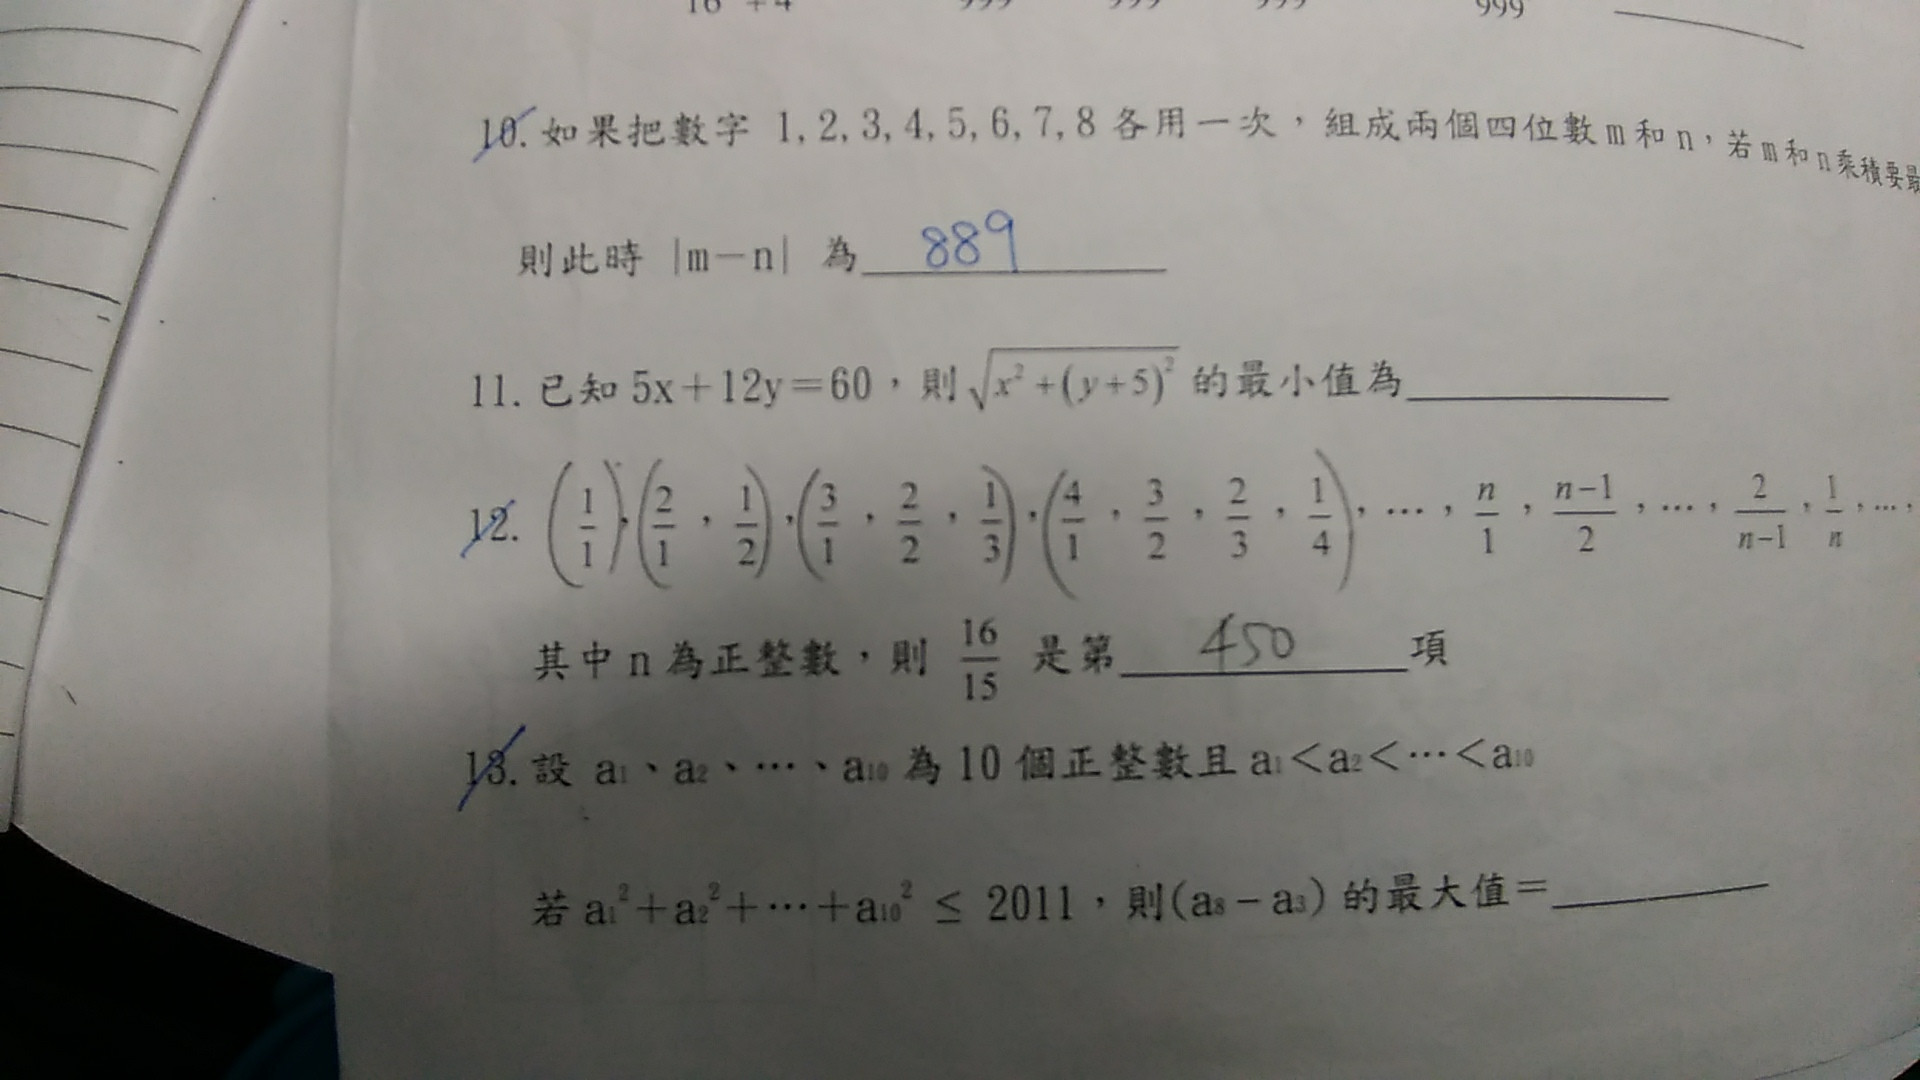 999 999 999 999
10. 如果把數字 1, 2, 3, 4, 5, 6, 7, 8 各用一次，組成兩個四位數 m 和 n，若 m 和 n 乘積要最
則此時 |m－n| 為 889
11. 已知 5x＋12y＝60，則 √(x²+(y+5)²) 的最小值為
12. (1/1), (2/1, 1/2), (3/1, 2/2, 1/3), (4/1, 3/2, 2/3, 1/4), …, n/1, n-1/2, …, 2/n-1, 1/n, …,
其中 n 為正整數，則 16/15 是第 450 項
13. 設 a₁、a₂、…、a₁₀ 為 10 個正整數且 a₁＜a₂＜…＜a₁₀
若 a₁²＋a₂²＋…＋a₁₀² ≤ 2011，則(a₈－a₃) 的最大值＝